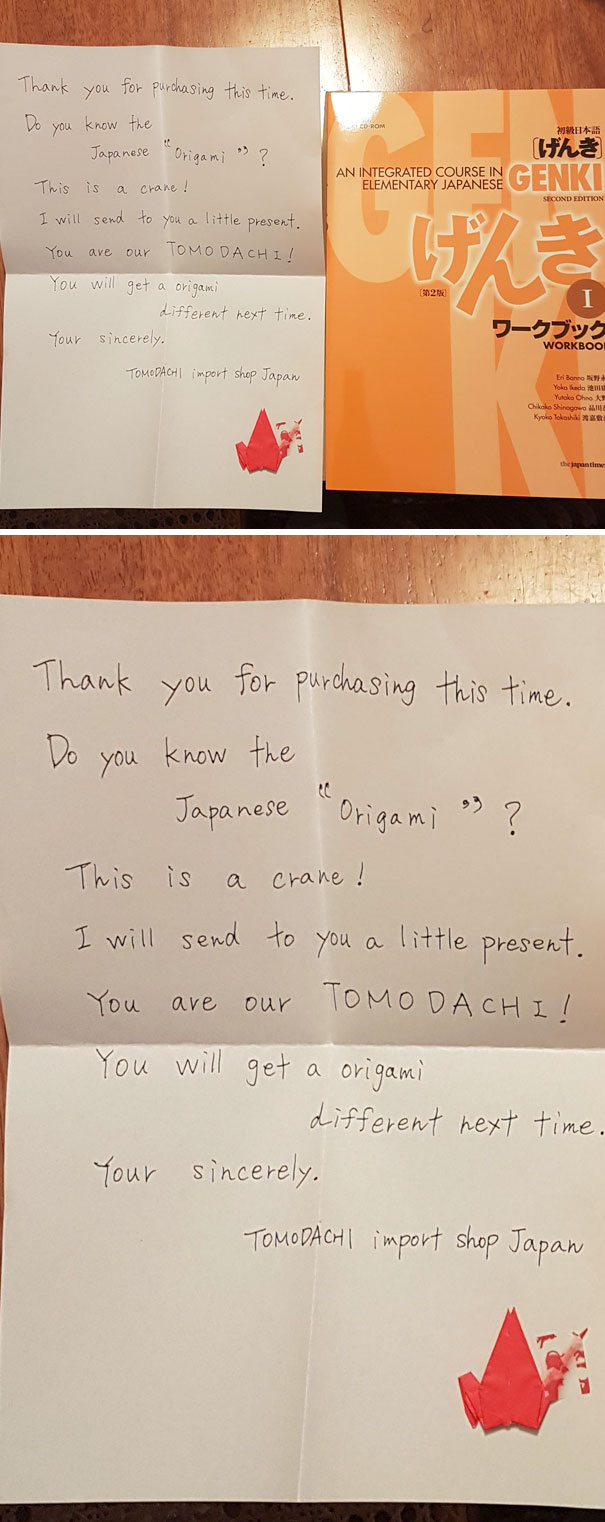 Thank you for purchasing this time.
Do you know the
Japanese “Origami”?
This is a crane!
I will send to you a little present.
You are our TOMODACHI!
You will get a origami
different next time.
Your sincerely.
TOMODACHI import shop Japan
CD-ROM
初級日本語
[げんき]
AN INTEGRATED COURSE IN
ELEMENTARY JAPANESE
GENKI
SECOND EDITION
GEN
げんき
K
I
[第2版]
ワークブック
WORKBOOK
Eri Banno 坂野
Yoko Ikeda 池田
Yutaka Ohno 大野
Chikako Shinagawa 品川
Kyoko Tokashiki 渡嘉敷
the japan times
Thank you for purchasing this time.
Do you know the
Japanese “Origami”?
This is a crane!
I will send to you a little present.
You are our TOMODACHI!
You will get a origami
different next time.
Your sincerely.
TOMODACHI import shop Japan